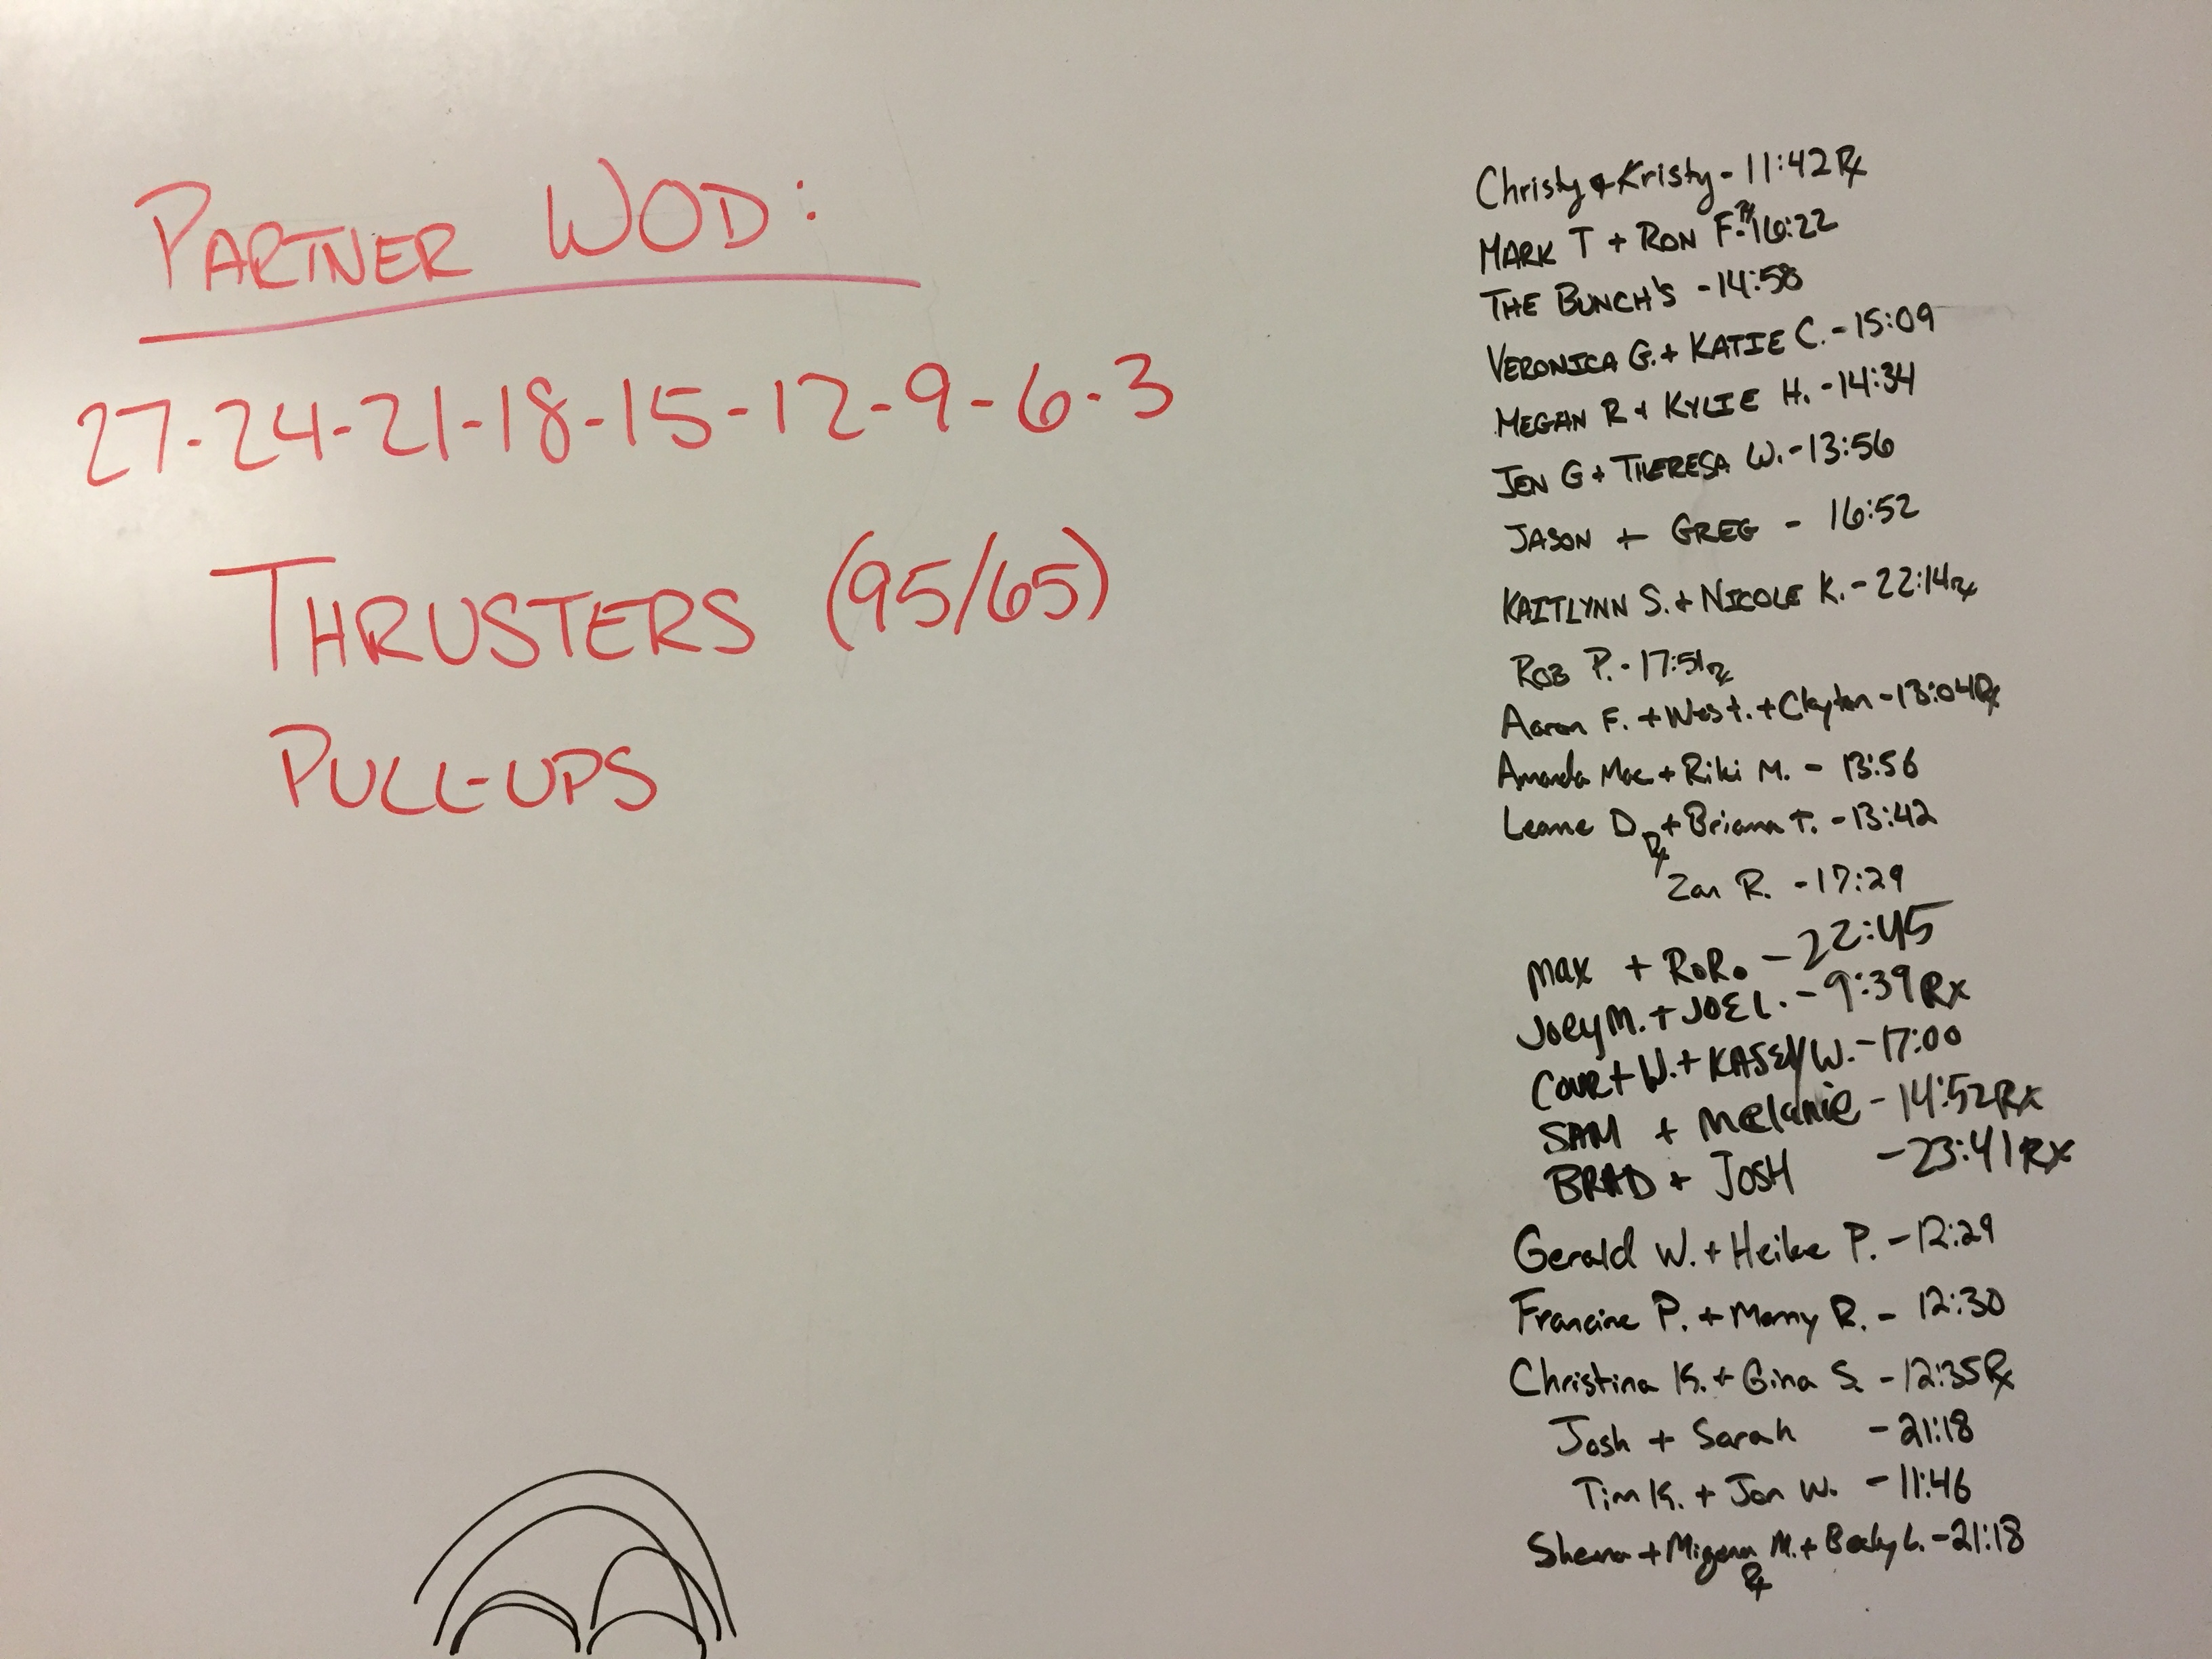 PARTNER WOD:
27-24-21-18-15-12-9-6-3
THRUSTERS (95/65)
PULL-UPS
Christy + Kristy - 11:42 Rx
MARK T + RON F. - Rx 16:22
THE BUNCH'S - 14:58
VERONICA G. + KATIE C. - 15:09
MEGAN R + KYLIE H. - 14:34
JEN G + THERESA W. - 13:56
JASON + GREG - 16:52
KAITLYNN S. + NICOLE K. - 22:14 Rx
ROB P. - 17:51 Rx
Aaron F. + Wes t. + Clayton - 13:04 Rx
Amanda Mac + Riki M. - 13:56
Leanne D. + Briana T. - 13:42
Rx
Zan R. - 17:29
Max + RoRo - 22:45
Joey M. + JOE L. - 9:39 Rx
COURT W. + KASEY W. - 17:00
SAM + Melanie - 14:52 Rx
BRAD + JOSH - 23:41 Rx
Gerald W. + Heike P. - 12:29
Francine P. + Manny R. - 12:30
Christina K. + Gina S. - 12:35 Rx
Josh + Sarah - 21:18
Tim K. + Jon W. - 11:46
+ M. + Becky L. - 21:18
Rx